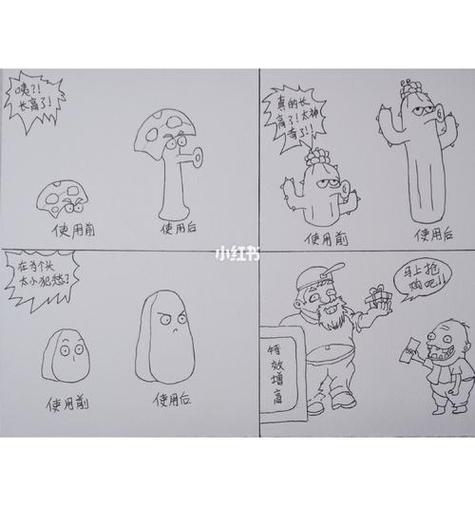 咦?!
长高了!
使用前
使用后
真的长
高了!太神
奇了!!
使用前
使用后
小红书
在为个长
太小犯愁?
使用前
使用后
马上抢
购吧!!
特
效
增
高